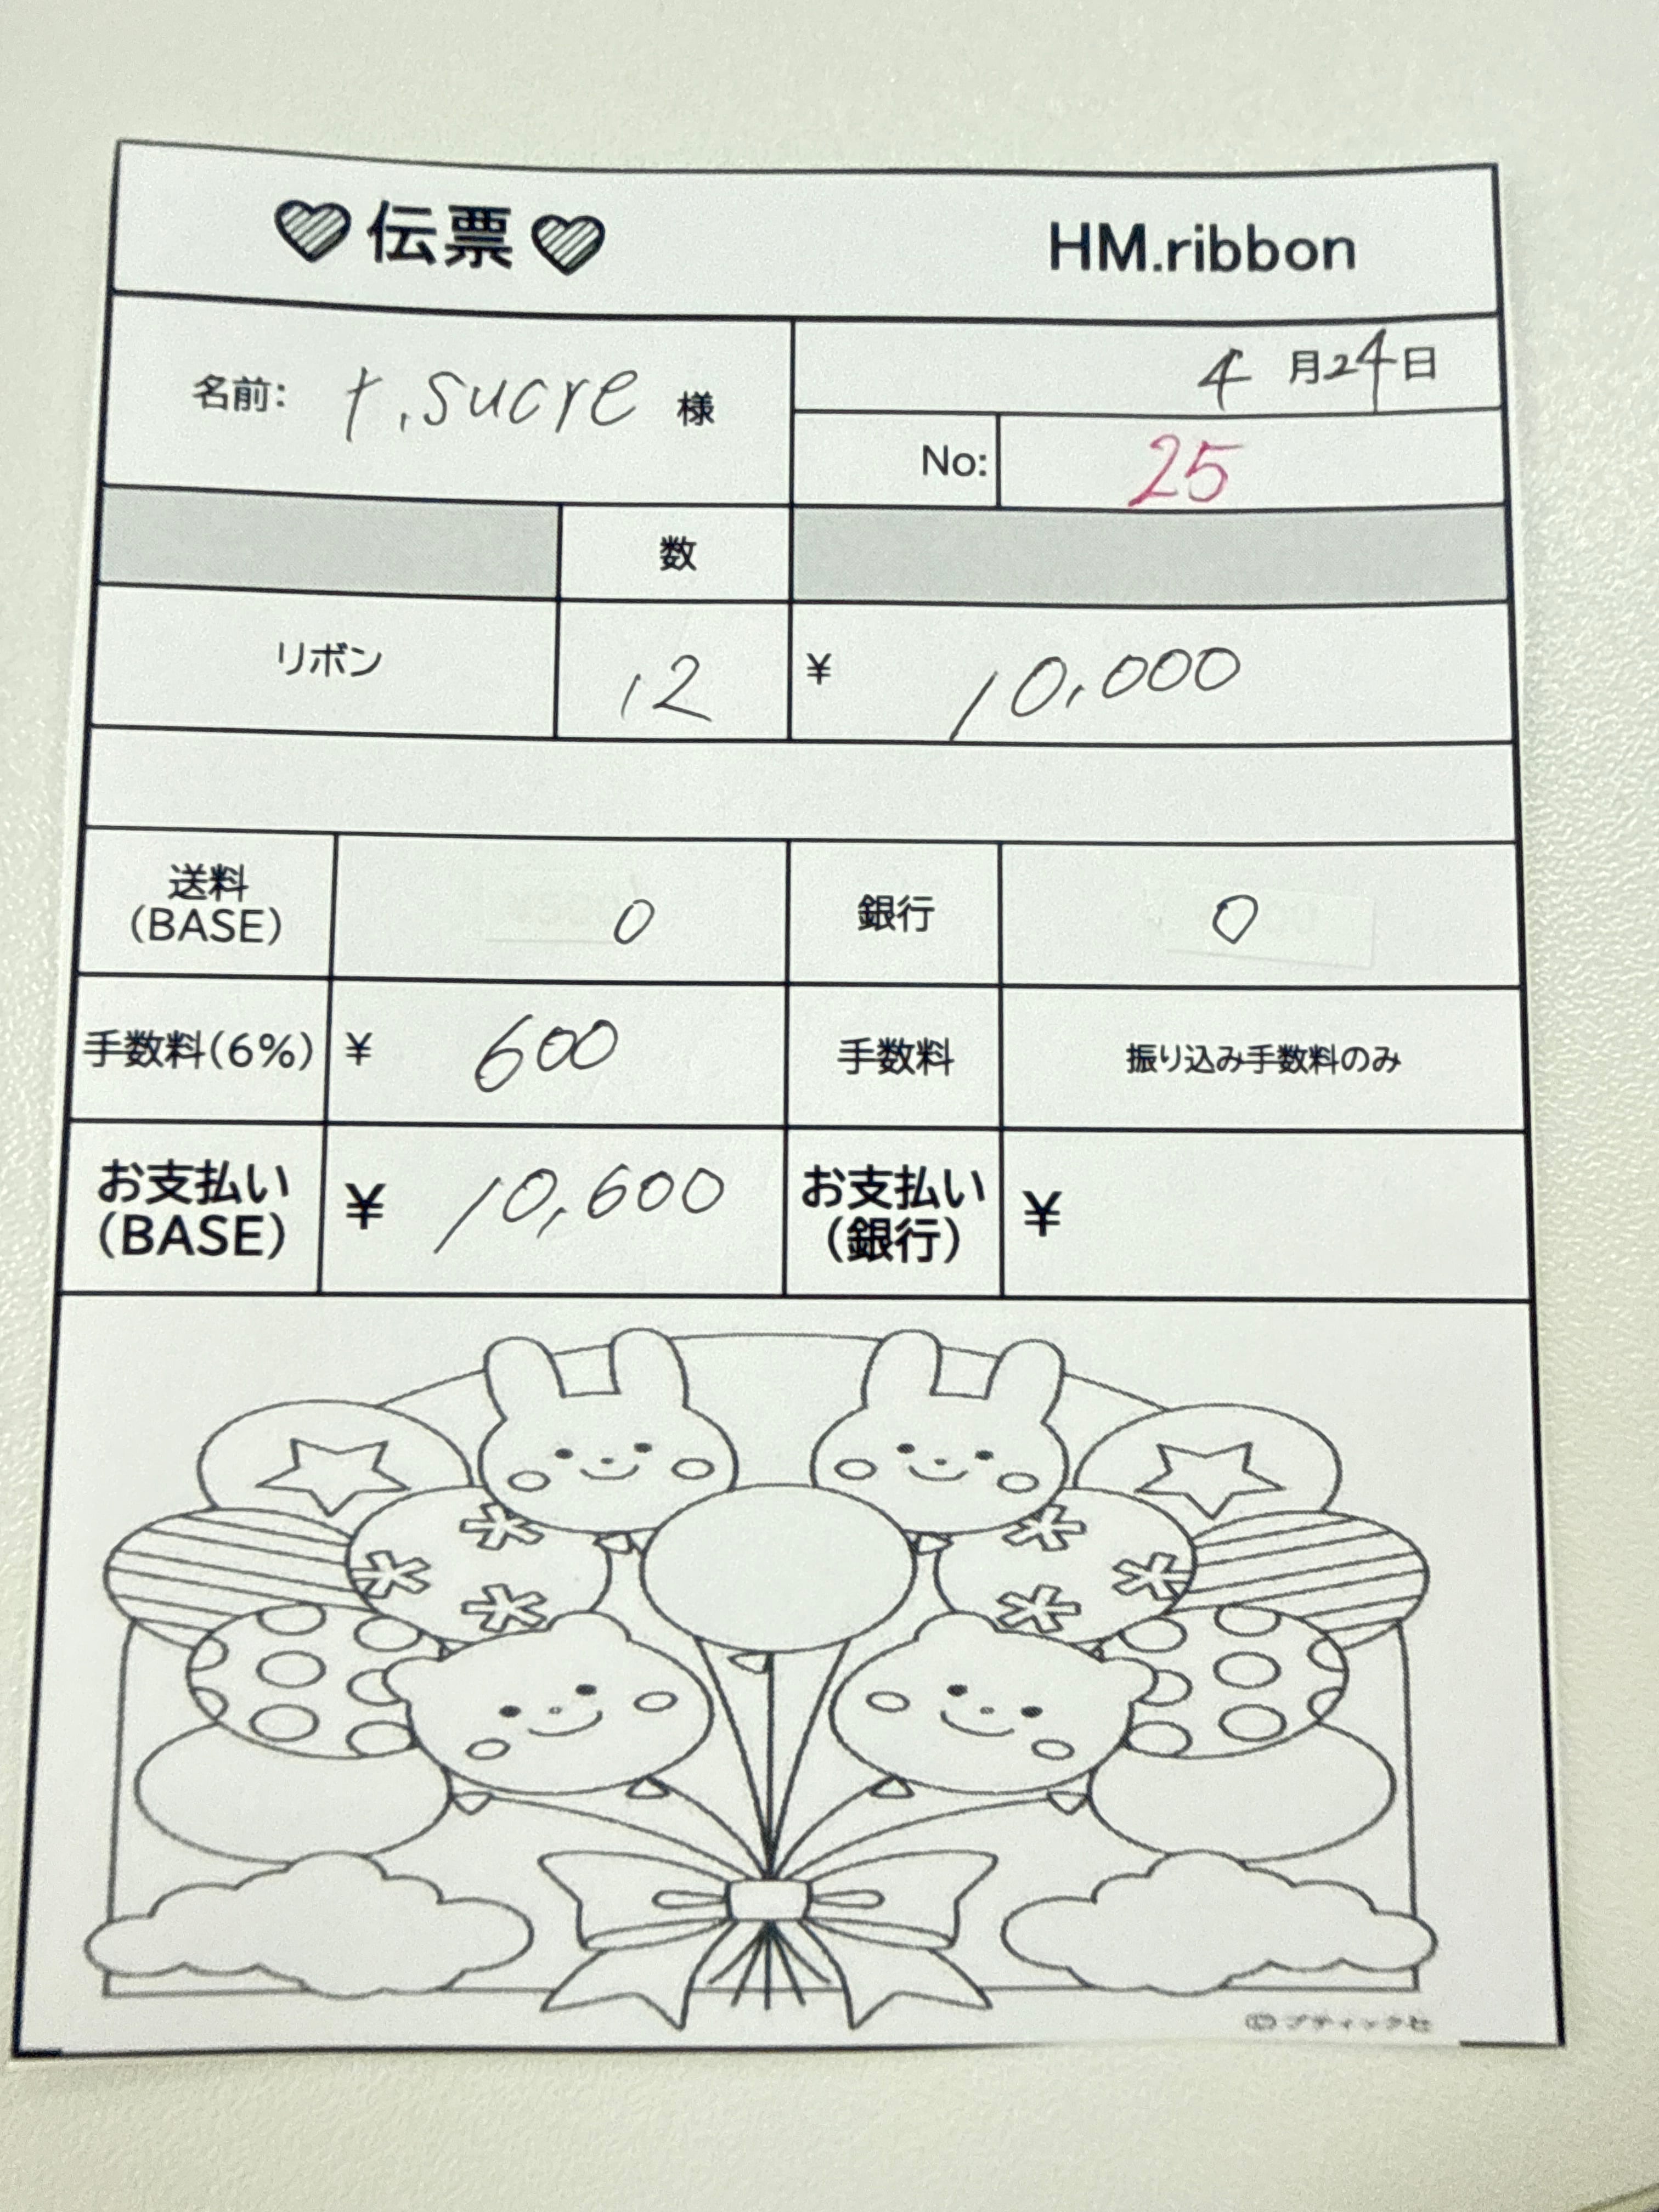 伝票 HM.ribbon
名前: t.sucre 様
4月24日
No: 25
数
リボン 12 ¥ 10,000
送料(BASE) 0 銀行 0
手数料(6%) ¥ 600 手数料 振り込み手数料のみ
お支払い(BASE) ¥ 10,600 お支払い(銀行) ¥
©ブティック社